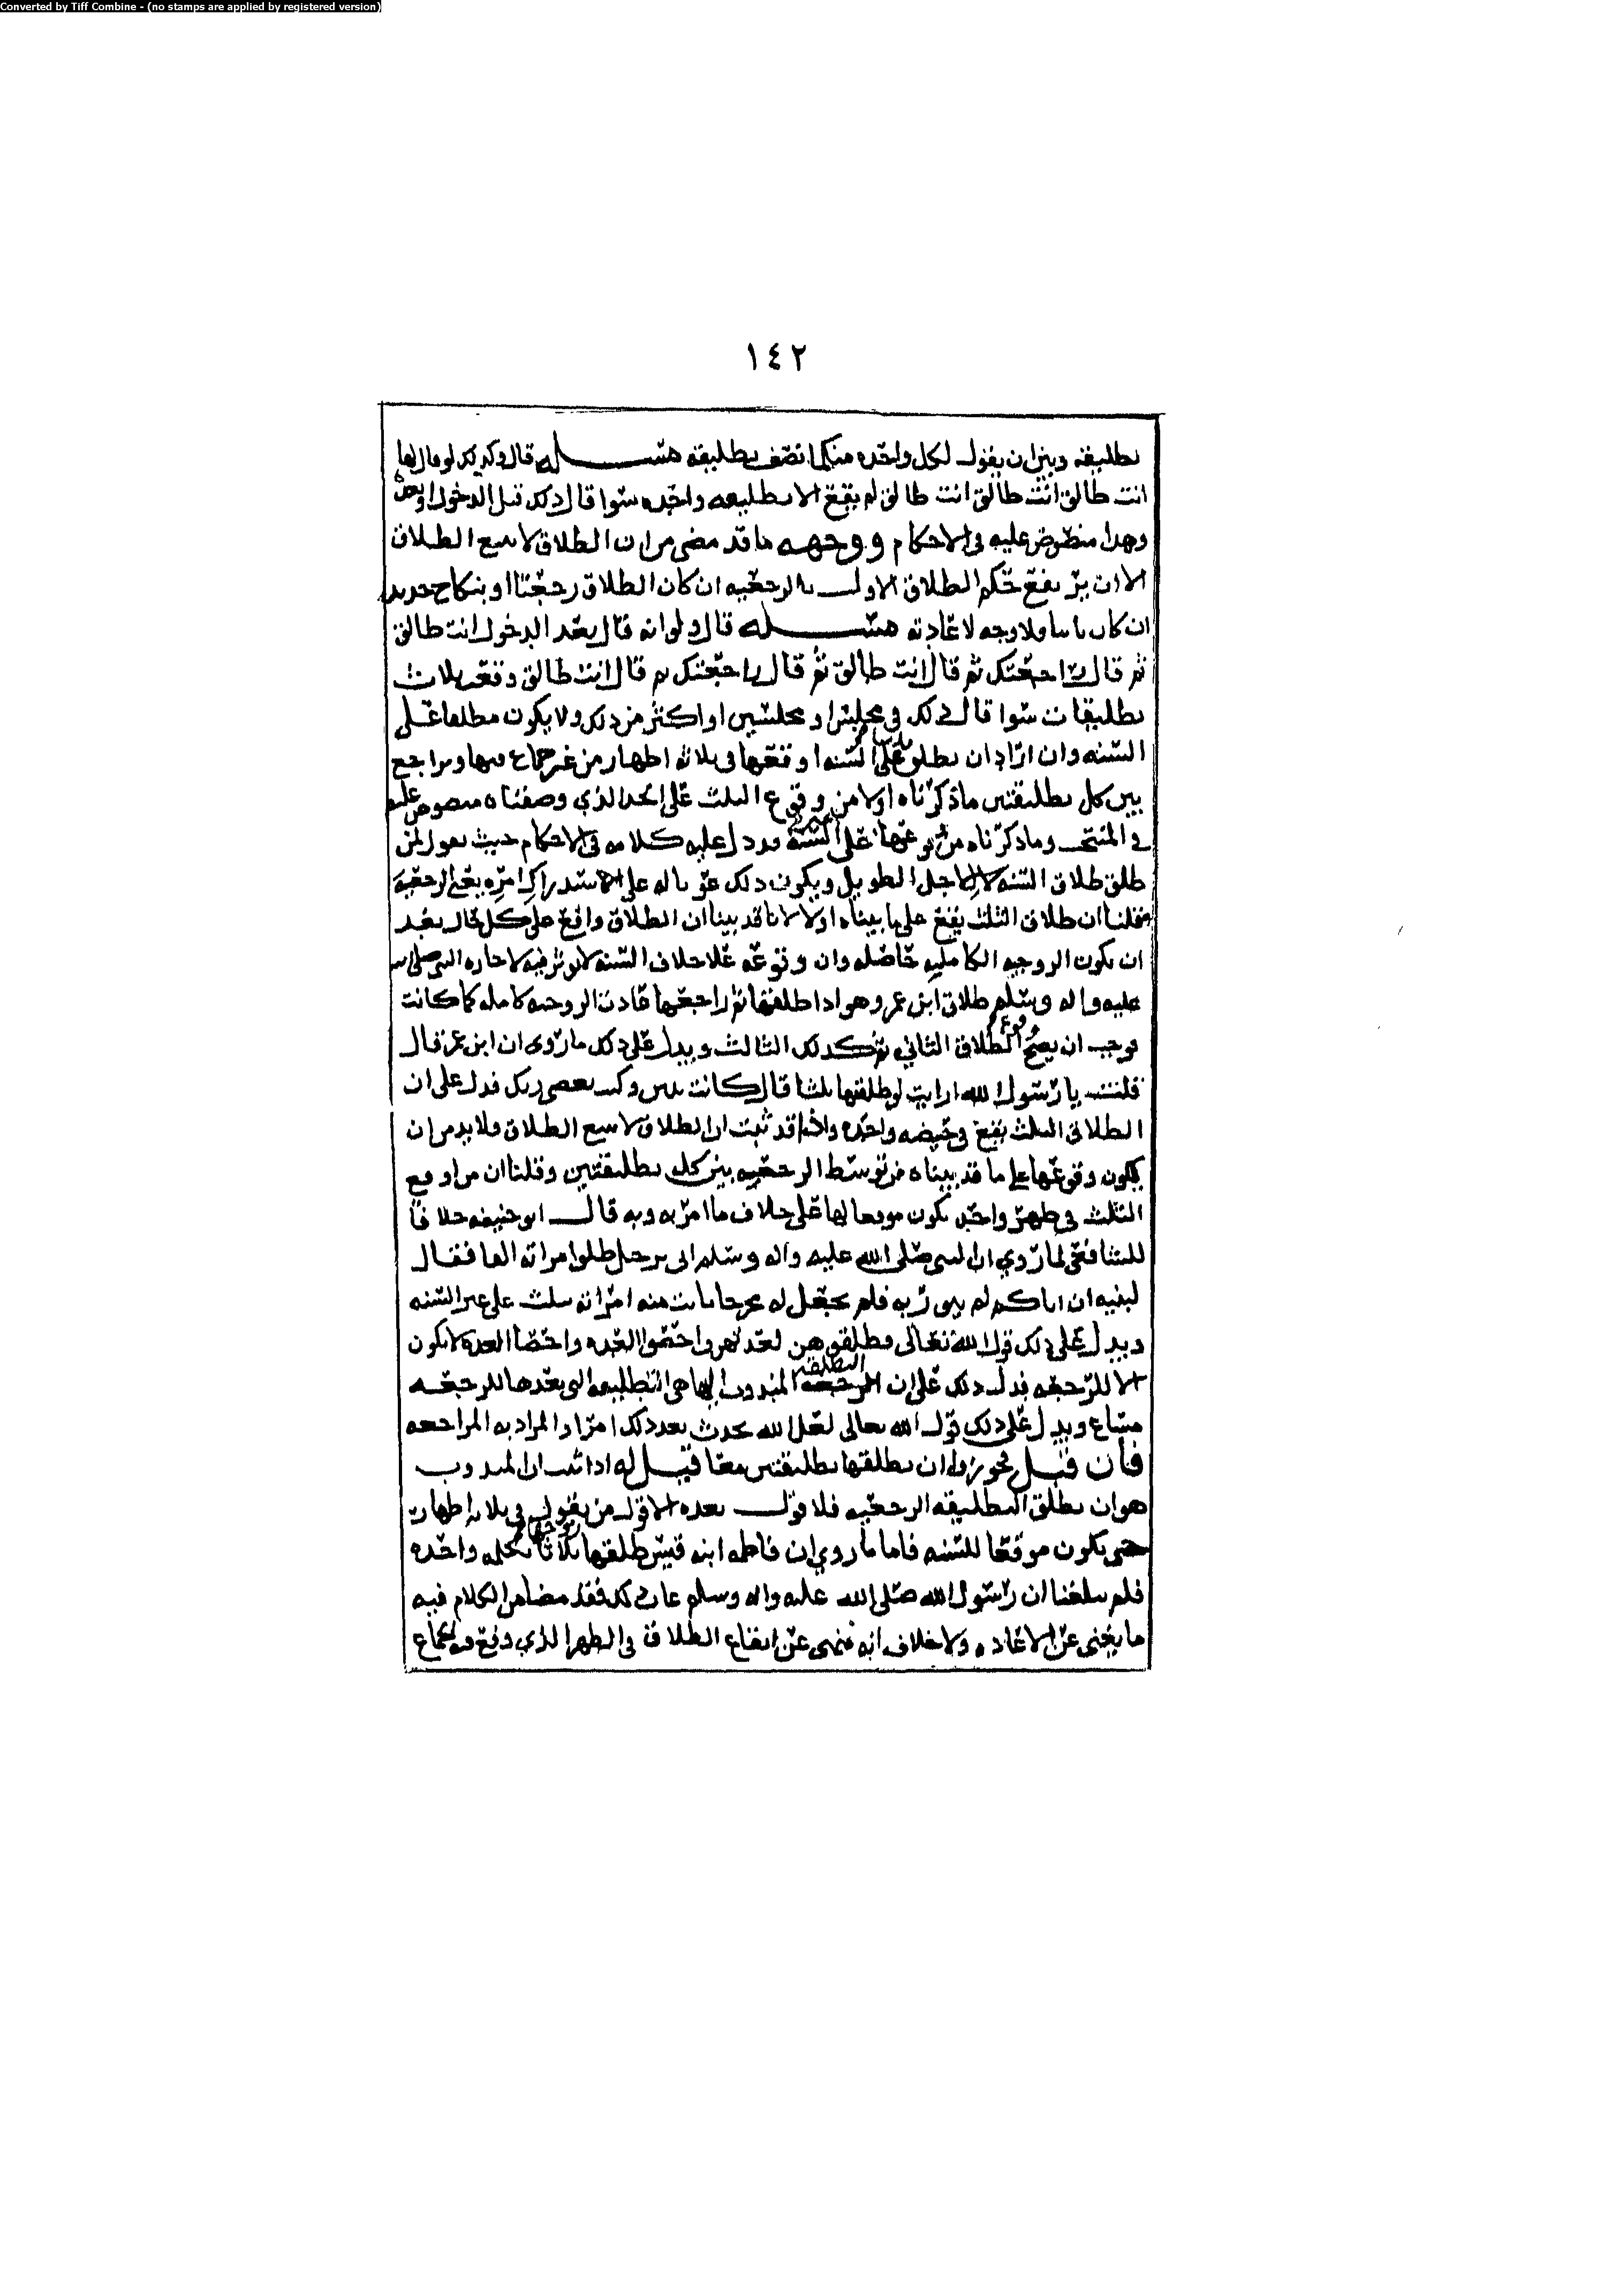 Converted by Tiff Combine - (no stamps are applied by registered version)
١٤٢
تطليقه وبين ان يقول لكل واحده منكما نصف تطليقه مسله قال وكذلك لو قال لها
انت طالق انت طالق انت طالق لم يقع الا تطليقه واحده سوا قال ذلك قبل الدخول او بعده
وهذا منصوص عليه في الاحكام ووجهه ما قد مضى من ان الطلاق لا يتبع الطلاق
الا ان يرتفع حكم الطلاق الاول بالرجعه ان كان الطلاق رجعيا او بنكاح جديد
ان كان باينا ولا وجه لاعادته مسله قال ولو انه قال بعد الدخول انت طالق
ثم قال راجعتك ثم قال انت طالق ثم قال راجعتك ثم قال انت طالق وقعت ثلاث
تطليقات سوا قال ذلك في مجلس او مجلسين او اكثر من ذلك ولا يكون مطلقا على
السنه وان اراد ان يطلق ثلاثا على السنه اوقعها في ثلاثه اطهار من غير جماع فيها ويراجع
بين كل تطليقتين ما ذكرناه اولا من وقوع الثلث على الحد الذي وصفناه منصوص عليه
في المنتخب وما ذكرناه من وقوعها على غير السنه قد دل عليه كلامه في الاحكام حيث يقول لمن
طلق طلاق السنه الى الاجل الطويل ويكون ذلك عونا له على الاستدراك لامره يعني الرجعه
فقلنا ان طلاق الثلث يقع على ما بيناه اولا لانا قد بينا ان الطلاق واقع على كل حال بعد
ان تكون الزوجيه الكامله حاصله وان وقوعه على خلاف السنه لا يوثر فيه لاجازه النبي صلى الله
عليه واله وسلم طلاق ابن عمر وهو اذا طلقها ثم راجعها عادت الزوجيه كامله كما كانت
فوجب ان يصح وقوع الطلاق الثاني ثم كذلك الثالث ويدل على ذلك ما روي ان ابن عمر قال
قلت يا رسول الله ارايت لو طلقتها ثلثا قال كانت تبين وكنت تعصي ربك فدل على ان
الطلاق الثلث يقع في حيضه واحده واذا قد ثبت ان الطلاق لا يتبع الطلاق فلا بد من ان
يكون وقوعها على ما قد بيناه من توسط الرجعه بين كل تطليقتين وقلنا ان من اوقع
الثلث في طهر واحد يكون موقعا لها على خلاف ما امر به وبه قال ابو حنيفه خلافا
للشافعي لما روي ان النبي صلى الله عليه واله وسلم اتي برجل طلق امراته الفا فقال
لبنيه ان اباكم لم يتق ربه فلم يجعل له مخرجا بانت منه امراته بثلث على غير السنه
ويدل على ذلك قول الله تعالى فطلقوهن لعدتهن واحصوا العده واحصا العده لا يكون
الا للرجعه فدل ذلك على ان التطليقه المندوب اليها هي التطليقه التي بعدها للرجعه
مساغ ويدل على ذلك قول الله تعالى لعل الله يحدث بعد ذلك امرا والمراد به المراجعه
فان قيل فجوزوا ان يطلقها تطليقتين معا قيل له اذا ثبت ان المندوب
هو ان يطلق التطليقه الرجعيه فلا قول بعده الا قول من يقول في ثلاثه اطهار
حتى يكون موقعا للسنه فاما ما روي ان فاطمه ابنه قيس طلقها زوجها ثلاثا بكلمه واحده
فلم يبلغنا ان رسول الله صلى الله عليه واله وسلم عاب ذلك فقد مضى من الكلام فيه
ما يغني عن الاعاده ولا خلاف انه منهى عن ايقاع الطلاق في الطهر الذي وقع فيه الجماع